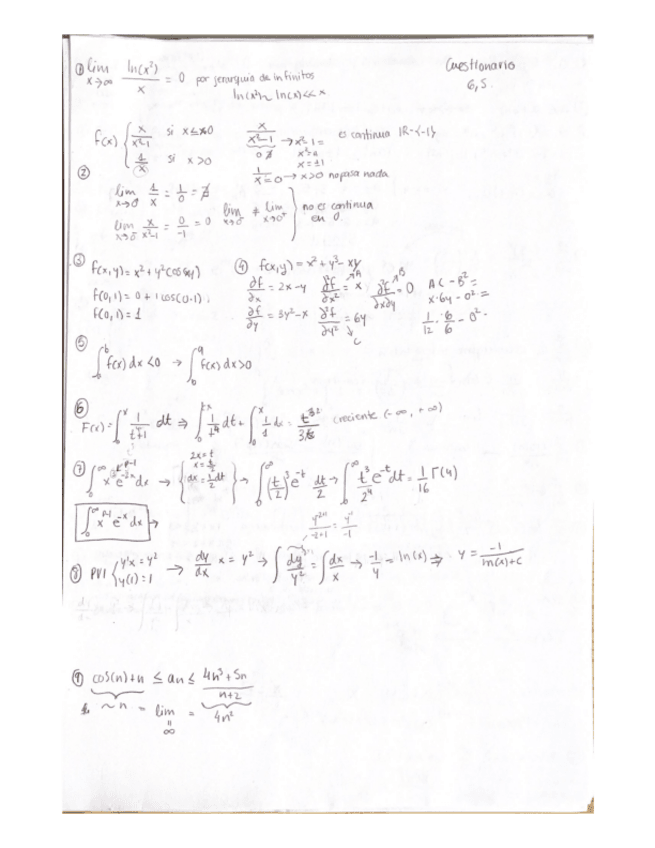 Cuestionario
6,5.
① lim x→∞ ln(x²)/x = 0 por jerarquía de infinitos
ln(x²) ~ ln(x) << x
f(x) { x/(x²-1) si x≤0
1/x si x>0
x/(x²-1) → x²-1 = es continua ℝ-{-1}
x²=1
x=±1
1/x = 0 → x>0 no pasa nada
②
lim x→0 1/x = 1/0 = ∄
lim x→0 x/(x²-1) = 0/-1 = 0
lim x→0⁻ ≠ lim x→0⁺ } no es continua en 0.
③ f(x,y) = x² + y² cos(xy)
f(0,1) = 0 + 1 cos(0·1)
f(0,1) = 1
④ f(x,y) = x² + y³ - xy
∂f/∂x = 2x-y ∂²f/∂x² = x → A ∂²f/∂x∂y = 0 → B AC - B² =
∂f/∂y = 3y²-x ∂²f/∂y² = 6y → C x·6y - 0² =
1/12 · 6/6 - 0²
⑤ ∫₀ᵇ f(x) dx <0 → ∫ f(x) dx >0
⑥ F(x) = ∫₀ˣ 1/(t⁴+1) dt ⇒ ∫ 1/t⁴ dt + ∫₀ˣ 1/1 dx = creciente (-∞, +∞)
⑦ ∫₀^∞ x³ e^(-2x) dx → { 2x=t
x = t/2
dx = 1/2 dt } → ∫₀^∞ (t/2)³ e^(-t) dt/2 → ∫₀^∞ t³/2⁴ e^(-t) dt = 1/16 Γ(4)
∫₀^∞ x^(p-1) e^(-x) dx →
y^(-2+1)/(-2+1) = y^(-1)/-1
⑧ PVI { y'x = y²
y(1) = 1 → dy/dx x = y² → ∫ dy/y² = ∫ dx/x → -1/y = ln(x) ⇒ y = -1/(ln(x)+c)
⑨ cos(n)+n ≤ an ≤ (4n³+5n)/(n+2)
~ n = lim = 4n²
∞